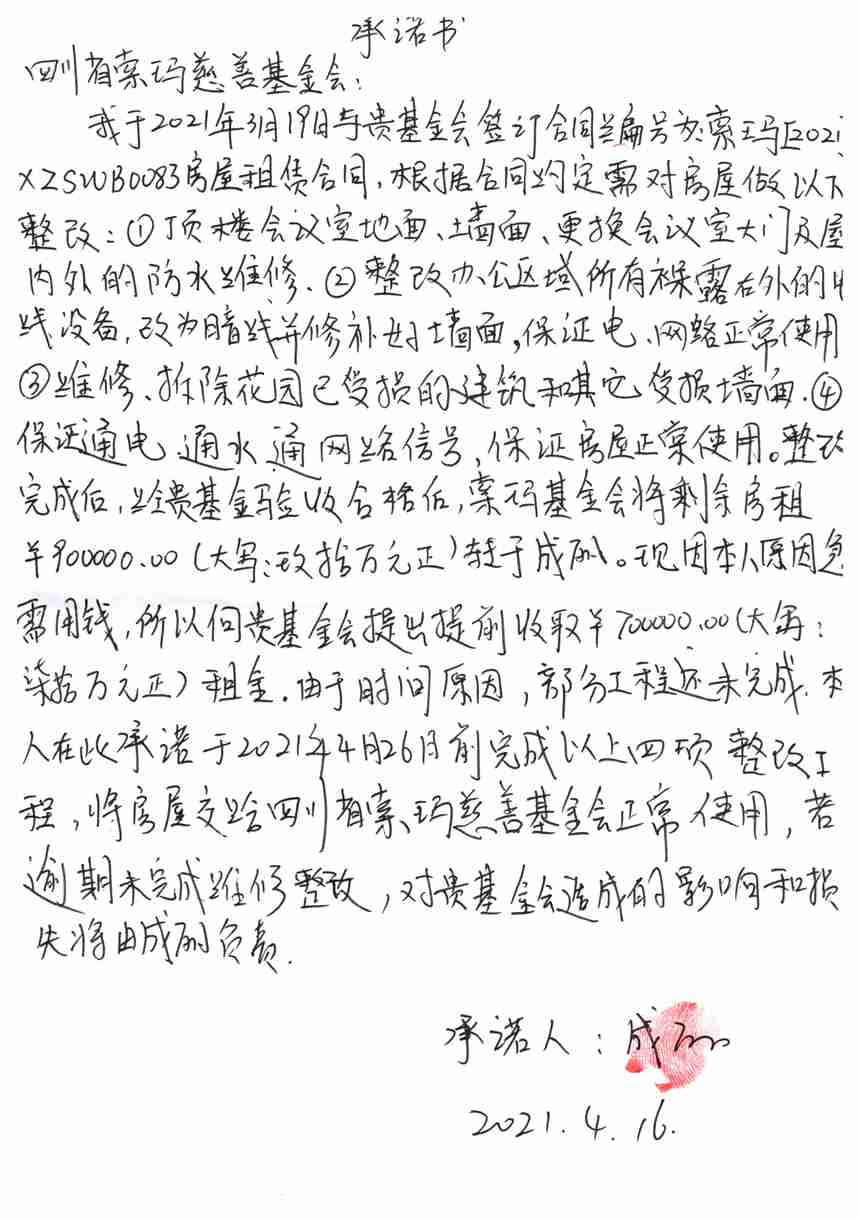 承诺书
四川省索玛慈善基金会:
我于2021年3月19日与贵基金会签订合同编号为索玛[2021
XZSWB0083房屋租赁合同,根据合同约定需对房屋做以下
整改:①顶楼会议室地面、墙面、更换会议室大门及屋
内外的防水维修.②整改办公区域所有裸露在外的
线设备,改为暗线并修补好墙面,保证电、网络正常使用
③维修、拆除花园已受损的建筑和其它受损墙面.④
保证通电、通水、通网络信号,保证房屋正常使用。整改
完成后,经贵基金验收合格后,索玛基金会将剩余房租
¥900000.00(大写:玖拾万元正)转于成丽。现因本人原因急
需用钱,所以向贵基金会提出提前收取¥700000.00(大写:
柒拾万元正)租金.由于时间原因,部分工程还未完成.本
人在此承诺于2021年4月26日前完成以上四项整改工
程,将房屋交给四川省索玛慈善基金会正常使用,若
逾期未完成维修整改,对贵基金会造成的影响和损
失将由成丽负责.
承诺人:成丽
2021.4.16.